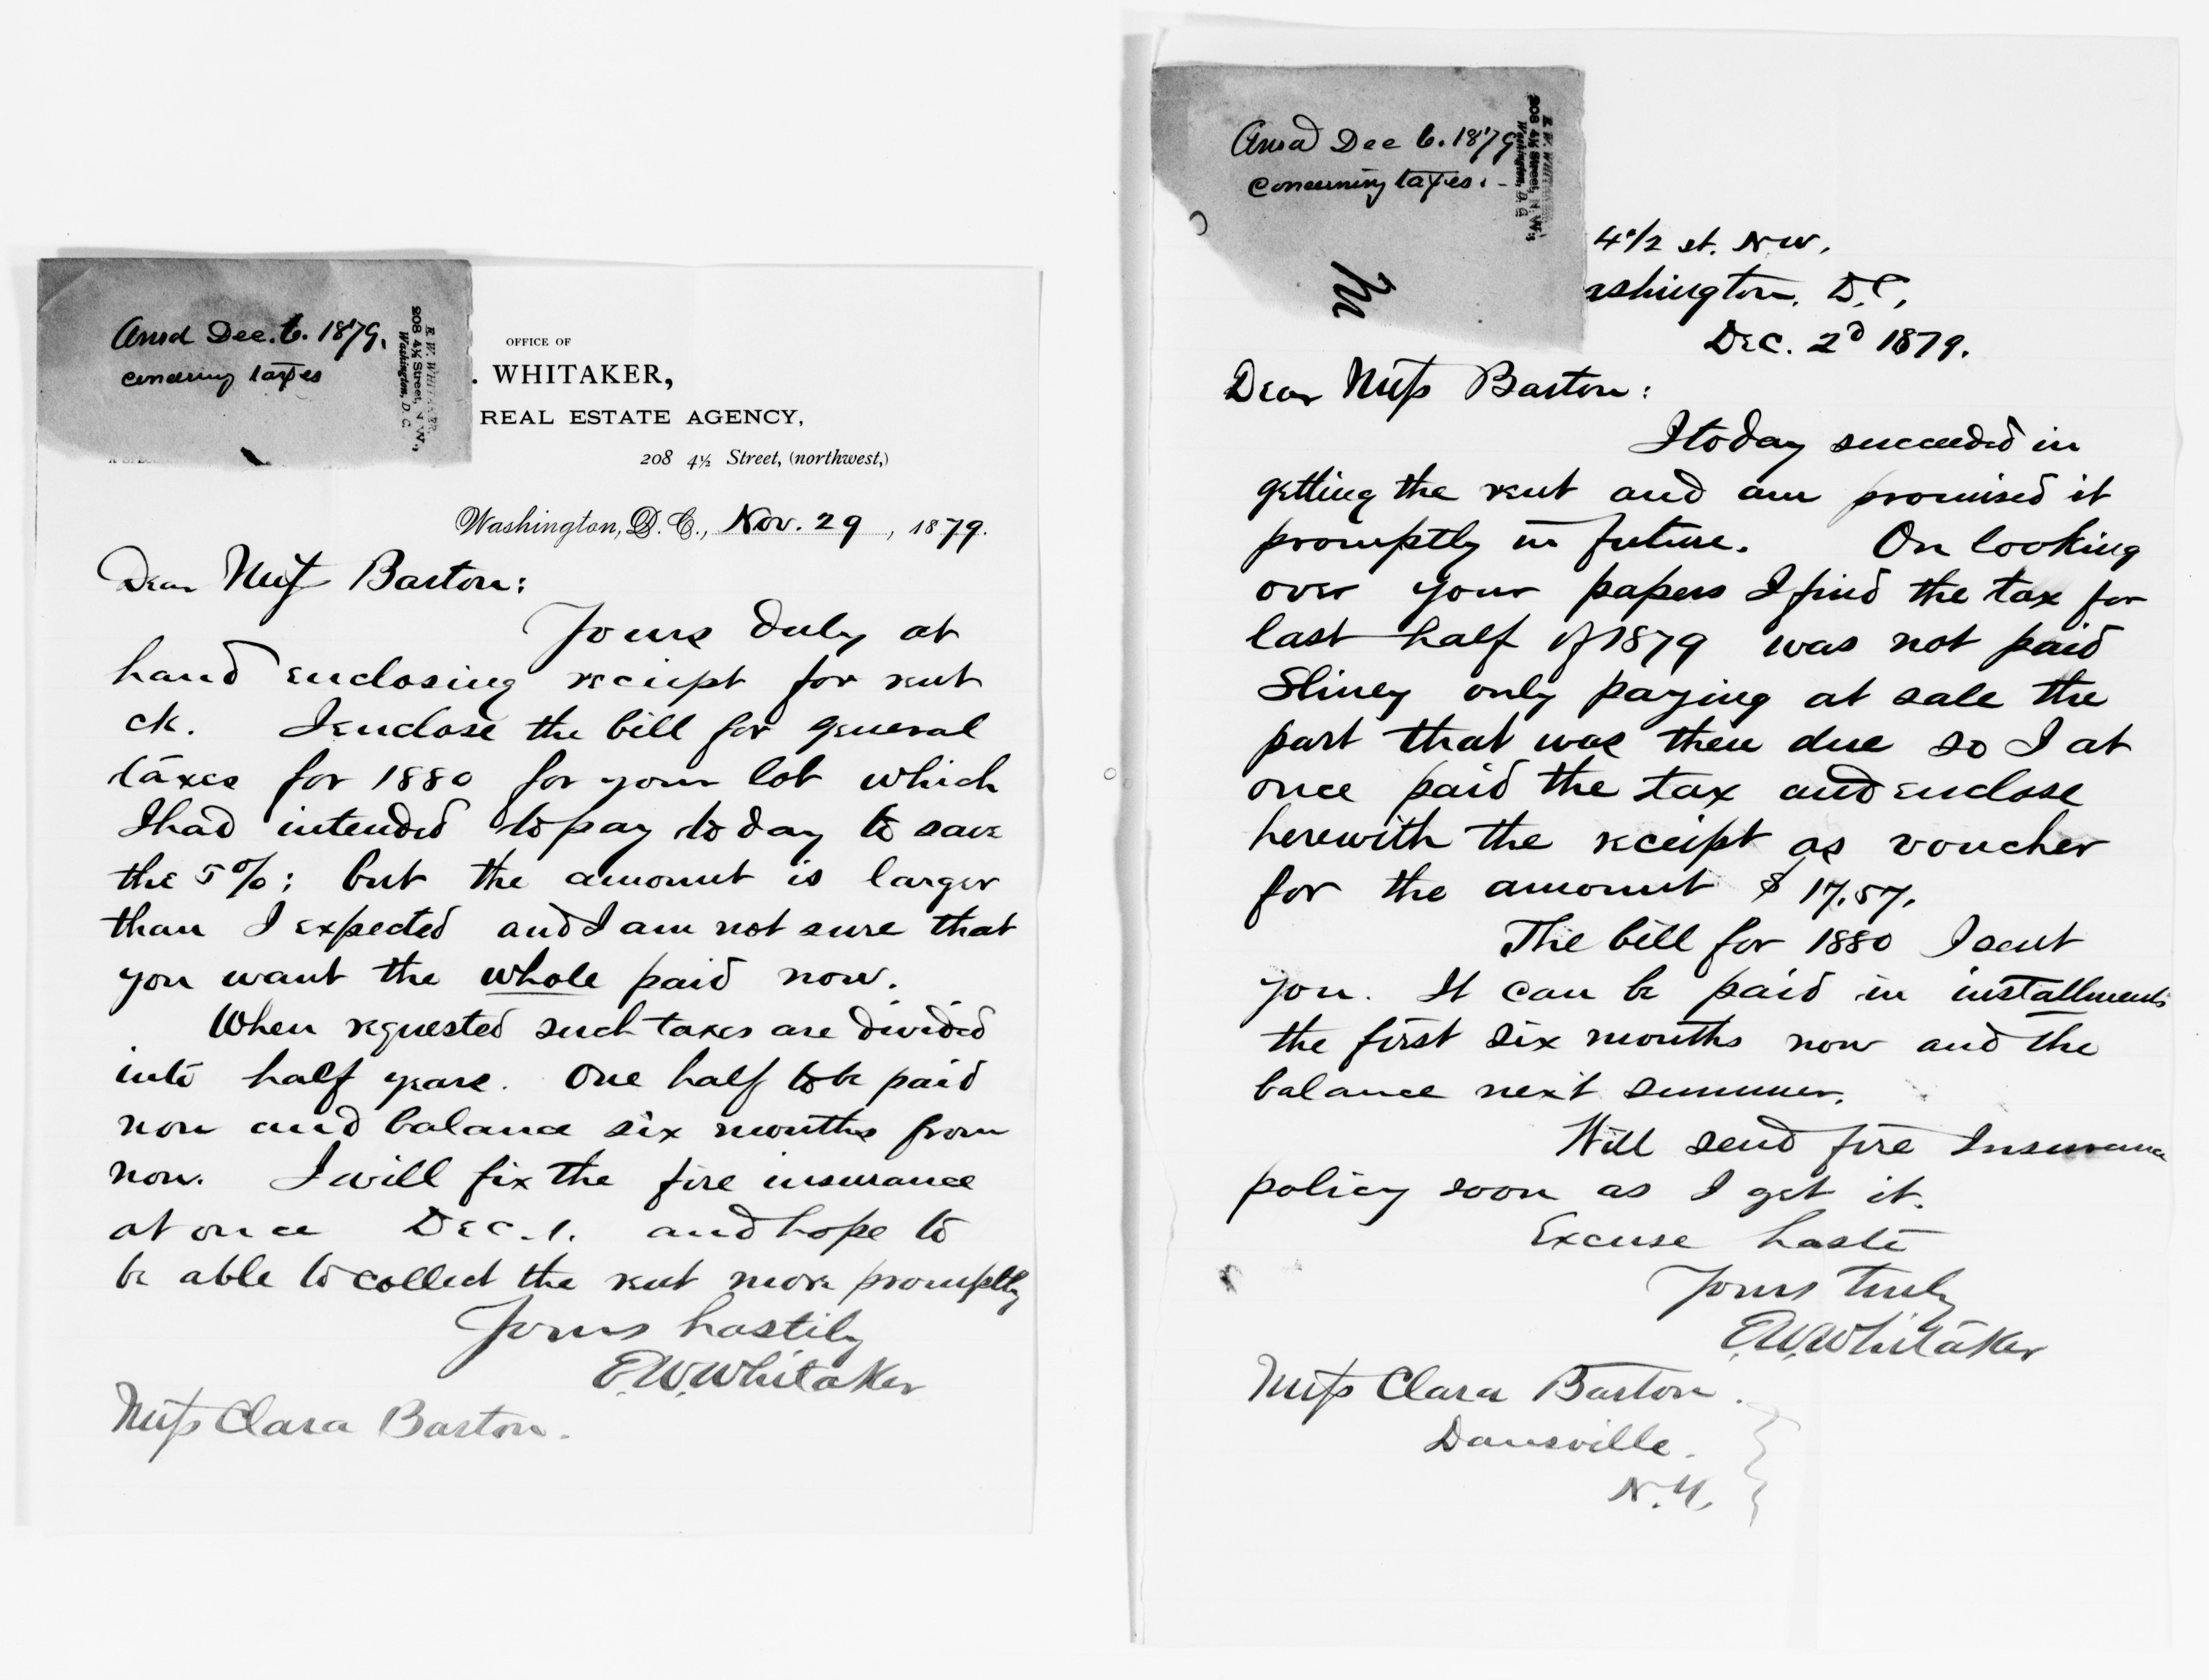 Ansd Dec. 6. 1879.
concerning taxes
E. W. WHITAKER,
208 4½ Street, N. W.,
Washington, D. C.
OFFICE OF
. WHITAKER,
REAL ESTATE AGENCY,
208 4½ Street, (northwest,)
Washington, D. C., Nov. 29, 1879.
Dear Miss Barton:
Yours duly at
hand enclosing receipt for rent
ck. I enclose the bill for general
taxes for 1880 for your lot which
I had intended to pay today to save
the 5%; but the amount is larger
than I expected and I am not sure that
you want the whole paid now.
When requested such taxes are divided
into half years. One half to be paid
now and balance six months from
now. I will fix the fire insurance
at once Dec. 1. and hope to
be able to collect the rent more promptly
Yours hastily
E. W. Whitaker
Miss Clara Barton.
Ansd Dec 6. 1879
concerning taxes. -
E. W. WHIT
208 4½ Street, N. W.,
Washington, D. C.
4 1/2 st. N W.
ashington, D. C.,
Dec. 2d 1879.
Dear Miss Barton:
I today succeeded in
getting the rent and am promised it
promptly in future. On looking
over your papers I find the tax for
last half of 1879 was not paid
Sliney only paying at sale the
part that was then due so I at
once paid the tax and enclose
herewith the receipt as voucher
for the amount $ 17.57.
The bill for 1880 I sent
you. It can be paid in installments
the first six months now and the
balance next summer.
Will send fire Insurance
policy soon as I get it.
Excuse haste
Yours truly
E. W. Whitaker
Miss Clara Barton.
Dansville.
N. Y.